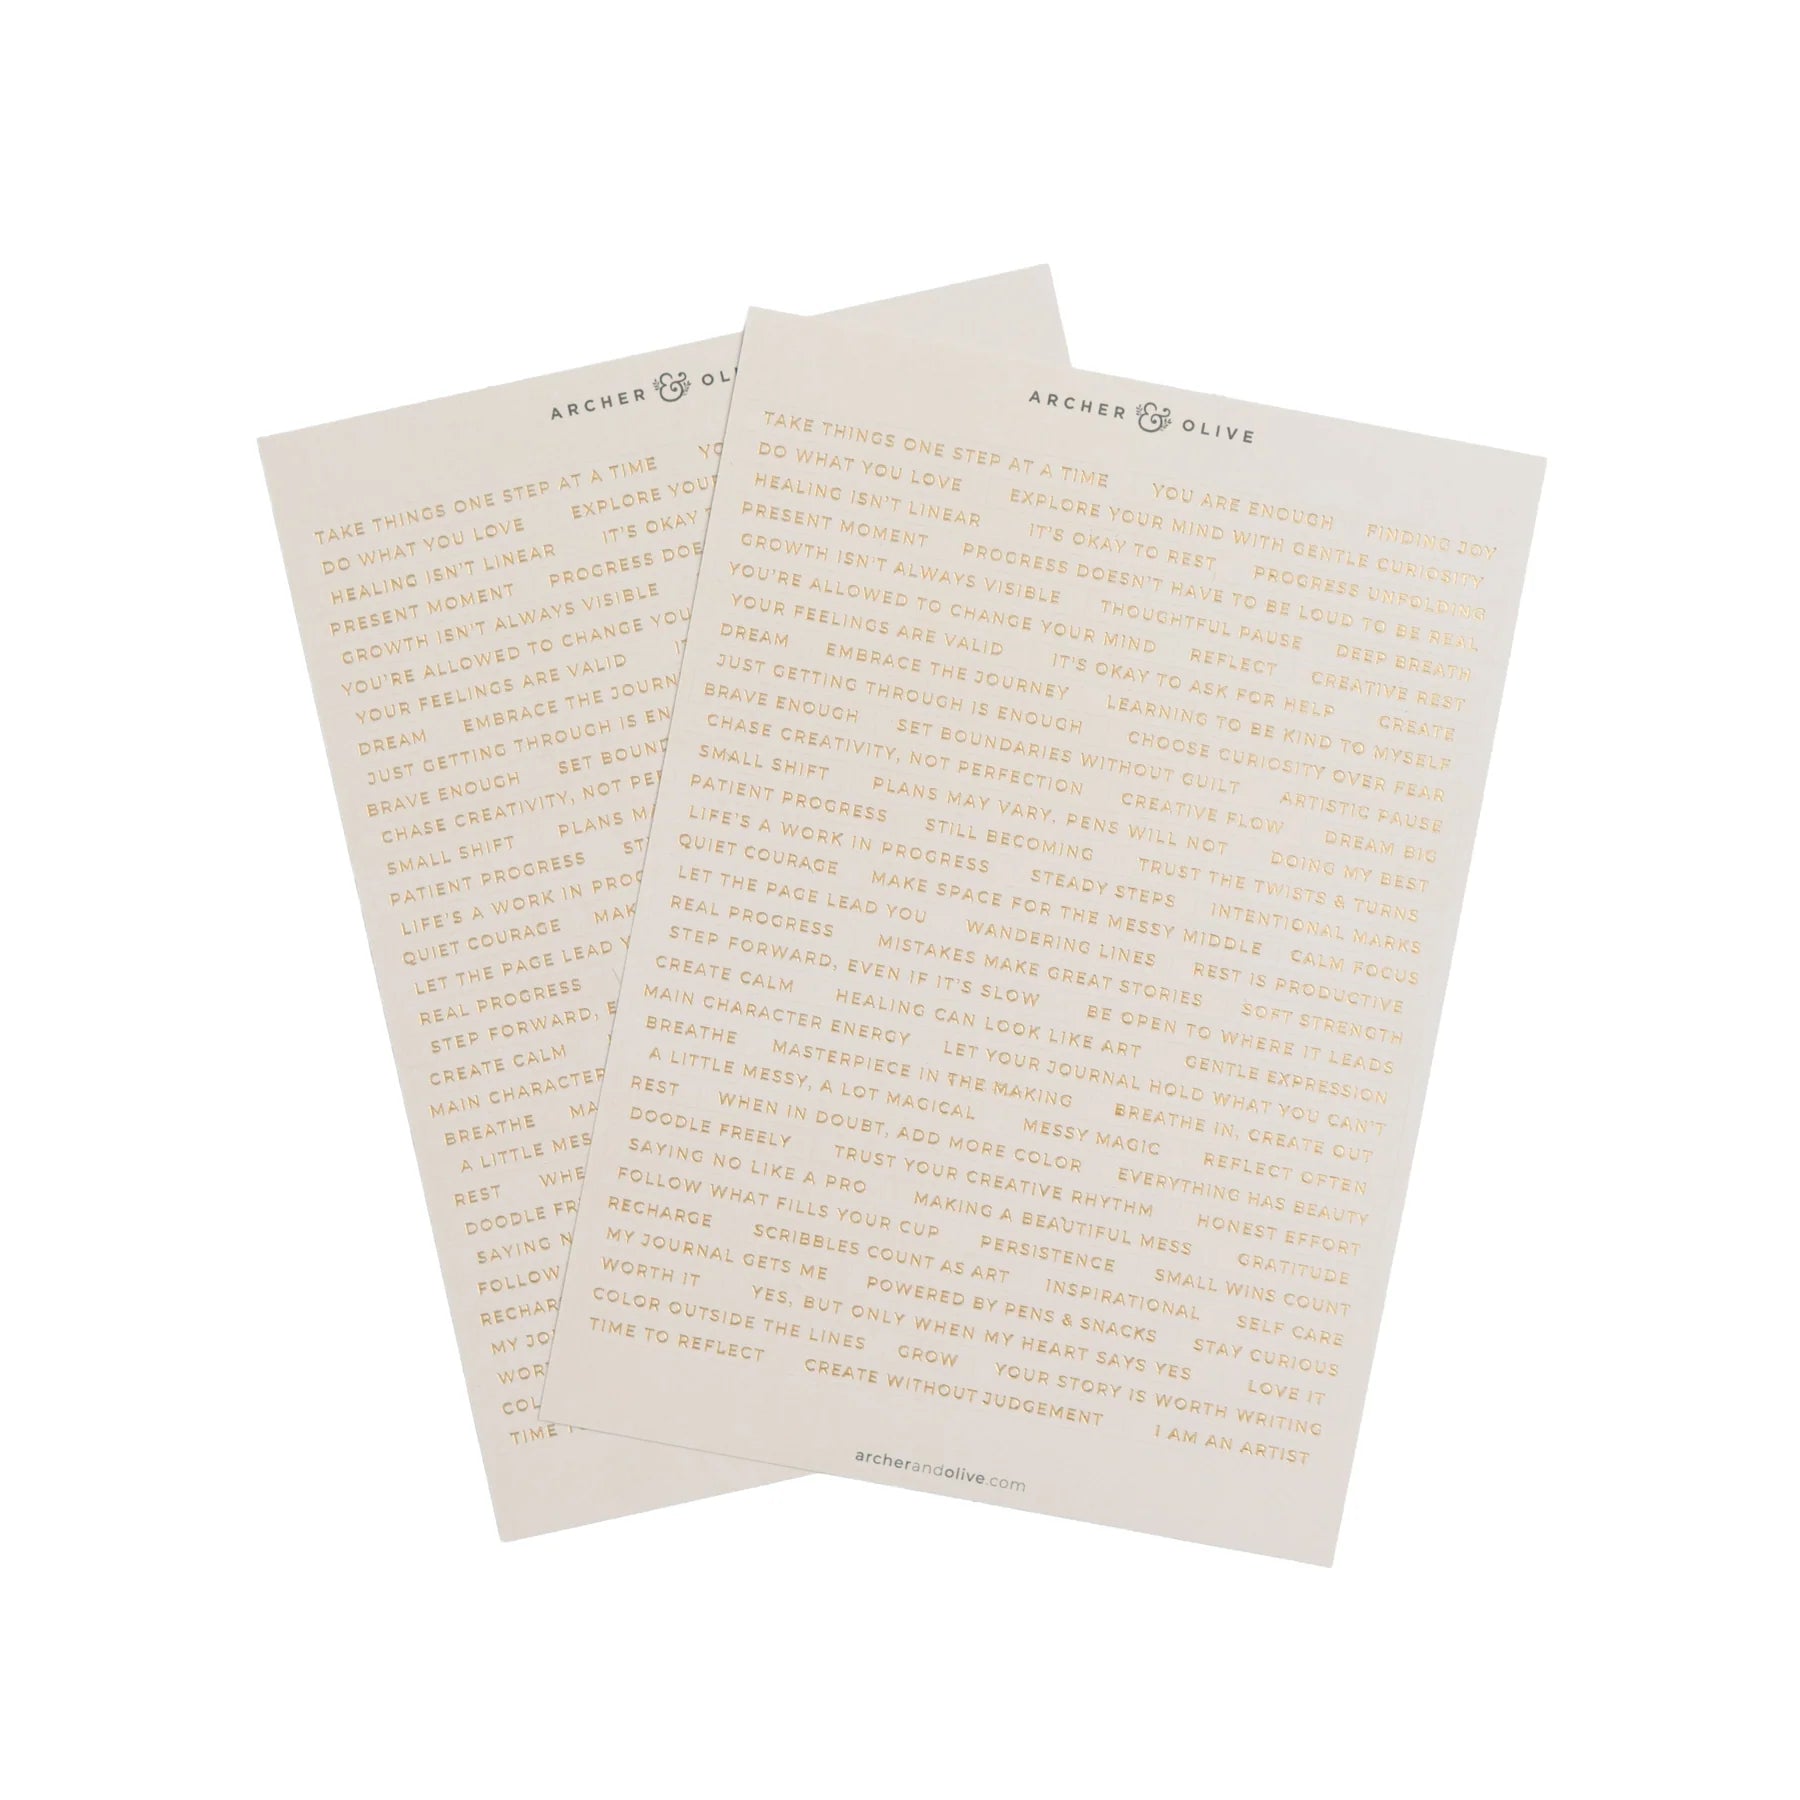 ARCHER & OL
TAKE THINGS ONE STEP AT A TIME YO
DO WHAT YOU LOVE EXPLORE YOUR
HEALING ISN'T LINEAR IT'S OKAY
PRESENT MOMENT PROGRESS DOE
GROWTH ISN'T ALWAYS VISIBLE
YOU'RE ALLOWED TO CHANGE YOU
YOUR FEELINGS ARE VALID
DREAM EMBRACE THE JOURN
JUST GETTING THROUGH IS EN
BRAVE ENOUGH SET BOUND
CHASE CREATIVITY, NOT PER
SMALL SHIFT PLANS M
PATIENT PROGRESS ST
LIFE'S A WORK IN PROG
QUIET COURAGE MAK
LET THE PAGE LEAD Y
REAL PROGRESS
STEP FORWARD, E
CREATE CALM
MAIN CHARACTER
BREATHE MA
A LITTLE MES
REST WHE
DOODLE FR
SAYING N
FOLLOW
RECHAR
MY JO
WOR
COL
TIME T
ARCHER & OLIVE
TAKE THINGS ONE STEP AT A TIME YOU ARE ENOUGH FINDING JOY
DO WHAT YOU LOVE EXPLORE YOUR MIND WITH GENTLE CURIOSITY
HEALING ISN'T LINEAR IT'S OKAY TO REST PROGRESS UNFOLDING
PRESENT MOMENT PROGRESS DOESN'T HAVE TO BE LOUD TO BE REAL
GROWTH ISN'T ALWAYS VISIBLE THOUGHTFUL PAUSE DEEP BREATH
YOU'RE ALLOWED TO CHANGE YOUR MIND REFLECT CREATIVE REST
YOUR FEELINGS ARE VALID IT'S OKAY TO ASK FOR HELP CREATE
DREAM EMBRACE THE JOURNEY LEARNING TO BE KIND TO MYSELF
JUST GETTING THROUGH IS ENOUGH CHOOSE CURIOSITY OVER FEAR
BRAVE ENOUGH SET BOUNDARIES WITHOUT GUILT ARTISTIC PAUSE
CHASE CREATIVITY, NOT PERFECTION CREATIVE FLOW DREAM BIG
SMALL SHIFT PLANS MAY VARY, PENS WILL NOT DOING MY BEST
PATIENT PROGRESS STILL BECOMING TRUST THE TWISTS & TURNS
LIFE'S A WORK IN PROGRESS STEADY STEPS INTENTIONAL MARKS
QUIET COURAGE MAKE SPACE FOR THE MESSY MIDDLE CALM FOCUS
LET THE PAGE LEAD YOU WANDERING LINES REST IS PRODUCTIVE
REAL PROGRESS MISTAKES MAKE GREAT STORIES SOFT STRENGTH
STEP FORWARD, EVEN IF IT'S SLOW BE OPEN TO WHERE IT LEADS
CREATE CALM HEALING CAN LOOK LIKE ART GENTLE EXPRESSION
MAIN CHARACTER ENERGY LET YOUR JOURNAL HOLD WHAT YOU CAN'T
BREATHE MASTERPIECE IN THE MAKING BREATHE IN, CREATE OUT
A LITTLE MESSY, A LOT MAGICAL MESSY MAGIC REFLECT OFTEN
REST WHEN IN DOUBT, ADD MORE COLOR EVERYTHING HAS BEAUTY
DOODLE FREELY TRUST YOUR CREATIVE RHYTHM HONEST EFFORT
SAYING NO LIKE A PRO MAKING A BEAUTIFUL MESS GRATITUDE
FOLLOW WHAT FILLS YOUR CUP PERSISTENCE SMALL WINS COUNT
RECHARGE SCRIBBLES COUNT AS ART INSPIRATIONAL SELF CARE
MY JOURNAL GETS ME POWERED BY PENS & SNACKS STAY CURIOUS
WORTH IT YES, BUT ONLY WHEN MY HEART SAYS YES LOVE IT
COLOR OUTSIDE THE LINES GROW YOUR STORY IS WORTH WRITING
TIME TO REFLECT CREATE WITHOUT JUDGEMENT I AM AN ARTIST
archerandolive.com